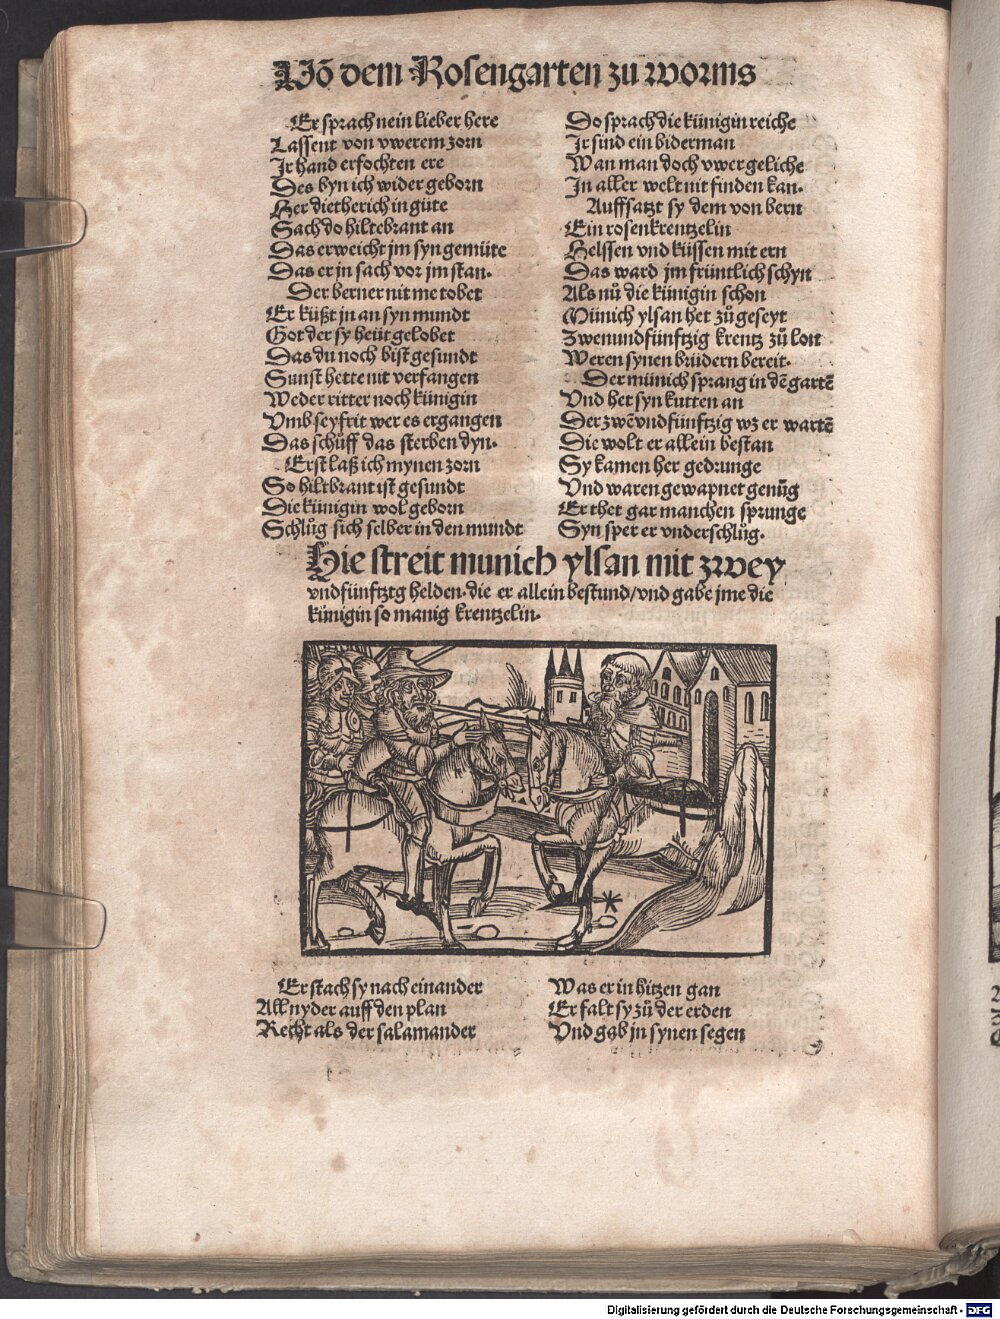 Võ dem Rosengarten zu worms
Er sprach nein lieber here
Lassent von vwerem zorn
Ir hand erfochten ere
Des byn ich wider geborn
Her dietherich in güte
Sach do hiltebrant an
Das erweicht jm syn gemüte
Das er jn sach vor jm stan.
Der berner nit me tobet
Er küßt jn an syn mundt
Got der sy heüt gelobet
Das du noch bist gesundt
Sunst hette nit verfangen
Weder ritter noch künigin
Vmb seyfrit wer es ergangen
Das schüff das sterben dyn.
Erst laß ich mynen zorn
So hiltbrant ist gesundt
Die künigin wol geborn
Schlüg sich selber in den mundt
Do sprach die künigin reiche
Ir sind ein biderman
Wan man doch vwer geliche
In aller welt nit finden kan.
Auffsatzt sy dem von bern
Ein rosenkrentzelin
Helssen vnd küssen mit ern
Das ward jm früntlich schyn
Als nů die künigin schon
Münich ylsan het zůgeseyt
Zwenundfünftzig krentz zů lon
Weren synen brüdern bereit.
Der münich sprang in dē gartē
Vnd het syn kutten an
Der zwēvndfünftzig wz er wartē
Die wolt er allein bestan
Sy kamen her gedrunge
Vnd waren gewapnet genůg
Er thet gar manchen sprunge
Syn sper er vnderschlůg.
Hie streit munich ylsan mit zwey
vndfünftztg helden. die er allein bestund/vnd gabe jme die
künigin so manig krentzelin.
Er stach sy nach einander
All nyder auff den plan
Recht als der salamander
Was er in hitzen gan
Er falt sy zů der erden
Vnd gab jn synen segen
Digitalisierung gefördert durch die Deutsche Forschungsgemeinschaft - DFG